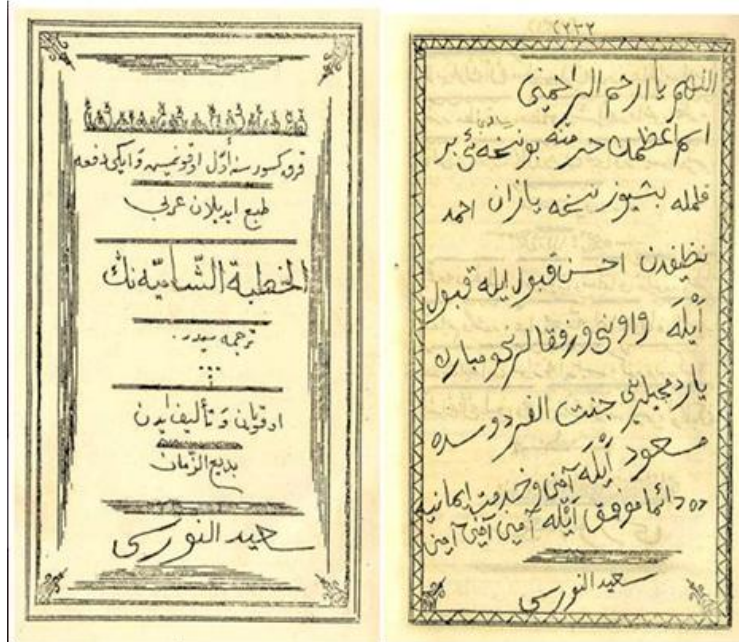 قرق كسور سنه أوّل اوقونمش وَ ايكى دفعه
طبع ايديلان عربى
الخطبة الشّاميّه نك
ترجمه سيدر.
...
اوقويان وَ تأليف ايدن
بديع الزّمان
سعيد النورسى
اللهم يا ارحم الراحمين
اسم اعظمك حرمتنه بو نسخه ئى بر
قلمله بشيوز نسخه يازان احمد
نظيفدن احسن قبول ايله قبول
أيْلَه و اونى و رفقالرينى و مبارك
ياردمجيلرينى جنت الفردوسده
مسعود أيْلَه آمين و خدمت ايمانيه
ده دائما موفق أيْلَه آمين آمين آمين
سعيد النورسى